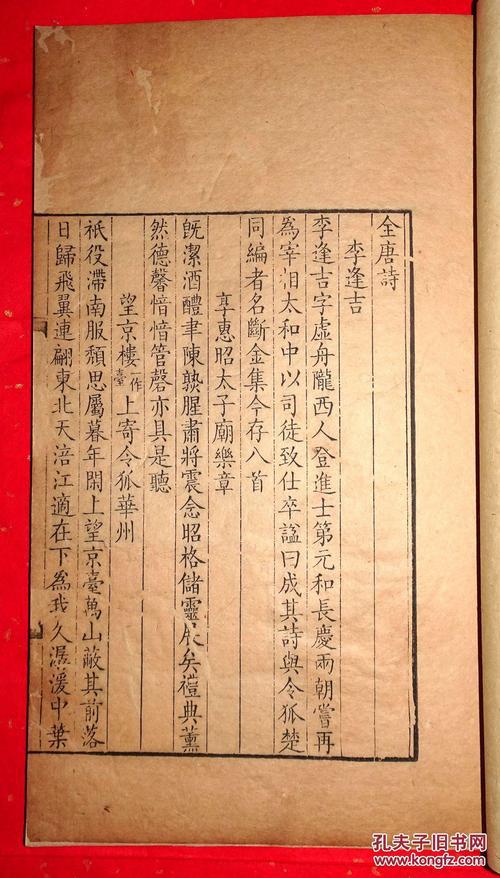 全唐詩
李逢吉
李逢吉字虛舟隴西人登進士第元和長慶兩朝嘗再
為宰相太和中以司徒致仕卒諡曰成其詩與令狐楚
同編者名斷金集今存八首
享惠昭太子廟樂章
既潔酒醴聿陳熟腥肅將震念昭格儲靈展矣禮典薰
然德馨愔愔管磬亦具是聽
望京樓一作臺上寄令狐華州
祇役滯南服頹思屬暮年閑上望京臺萬山蔽其前落
日歸飛翼連翩東北天涪江適在下為我久潺湲中葉
孔夫子旧书网
www.kongfz.com